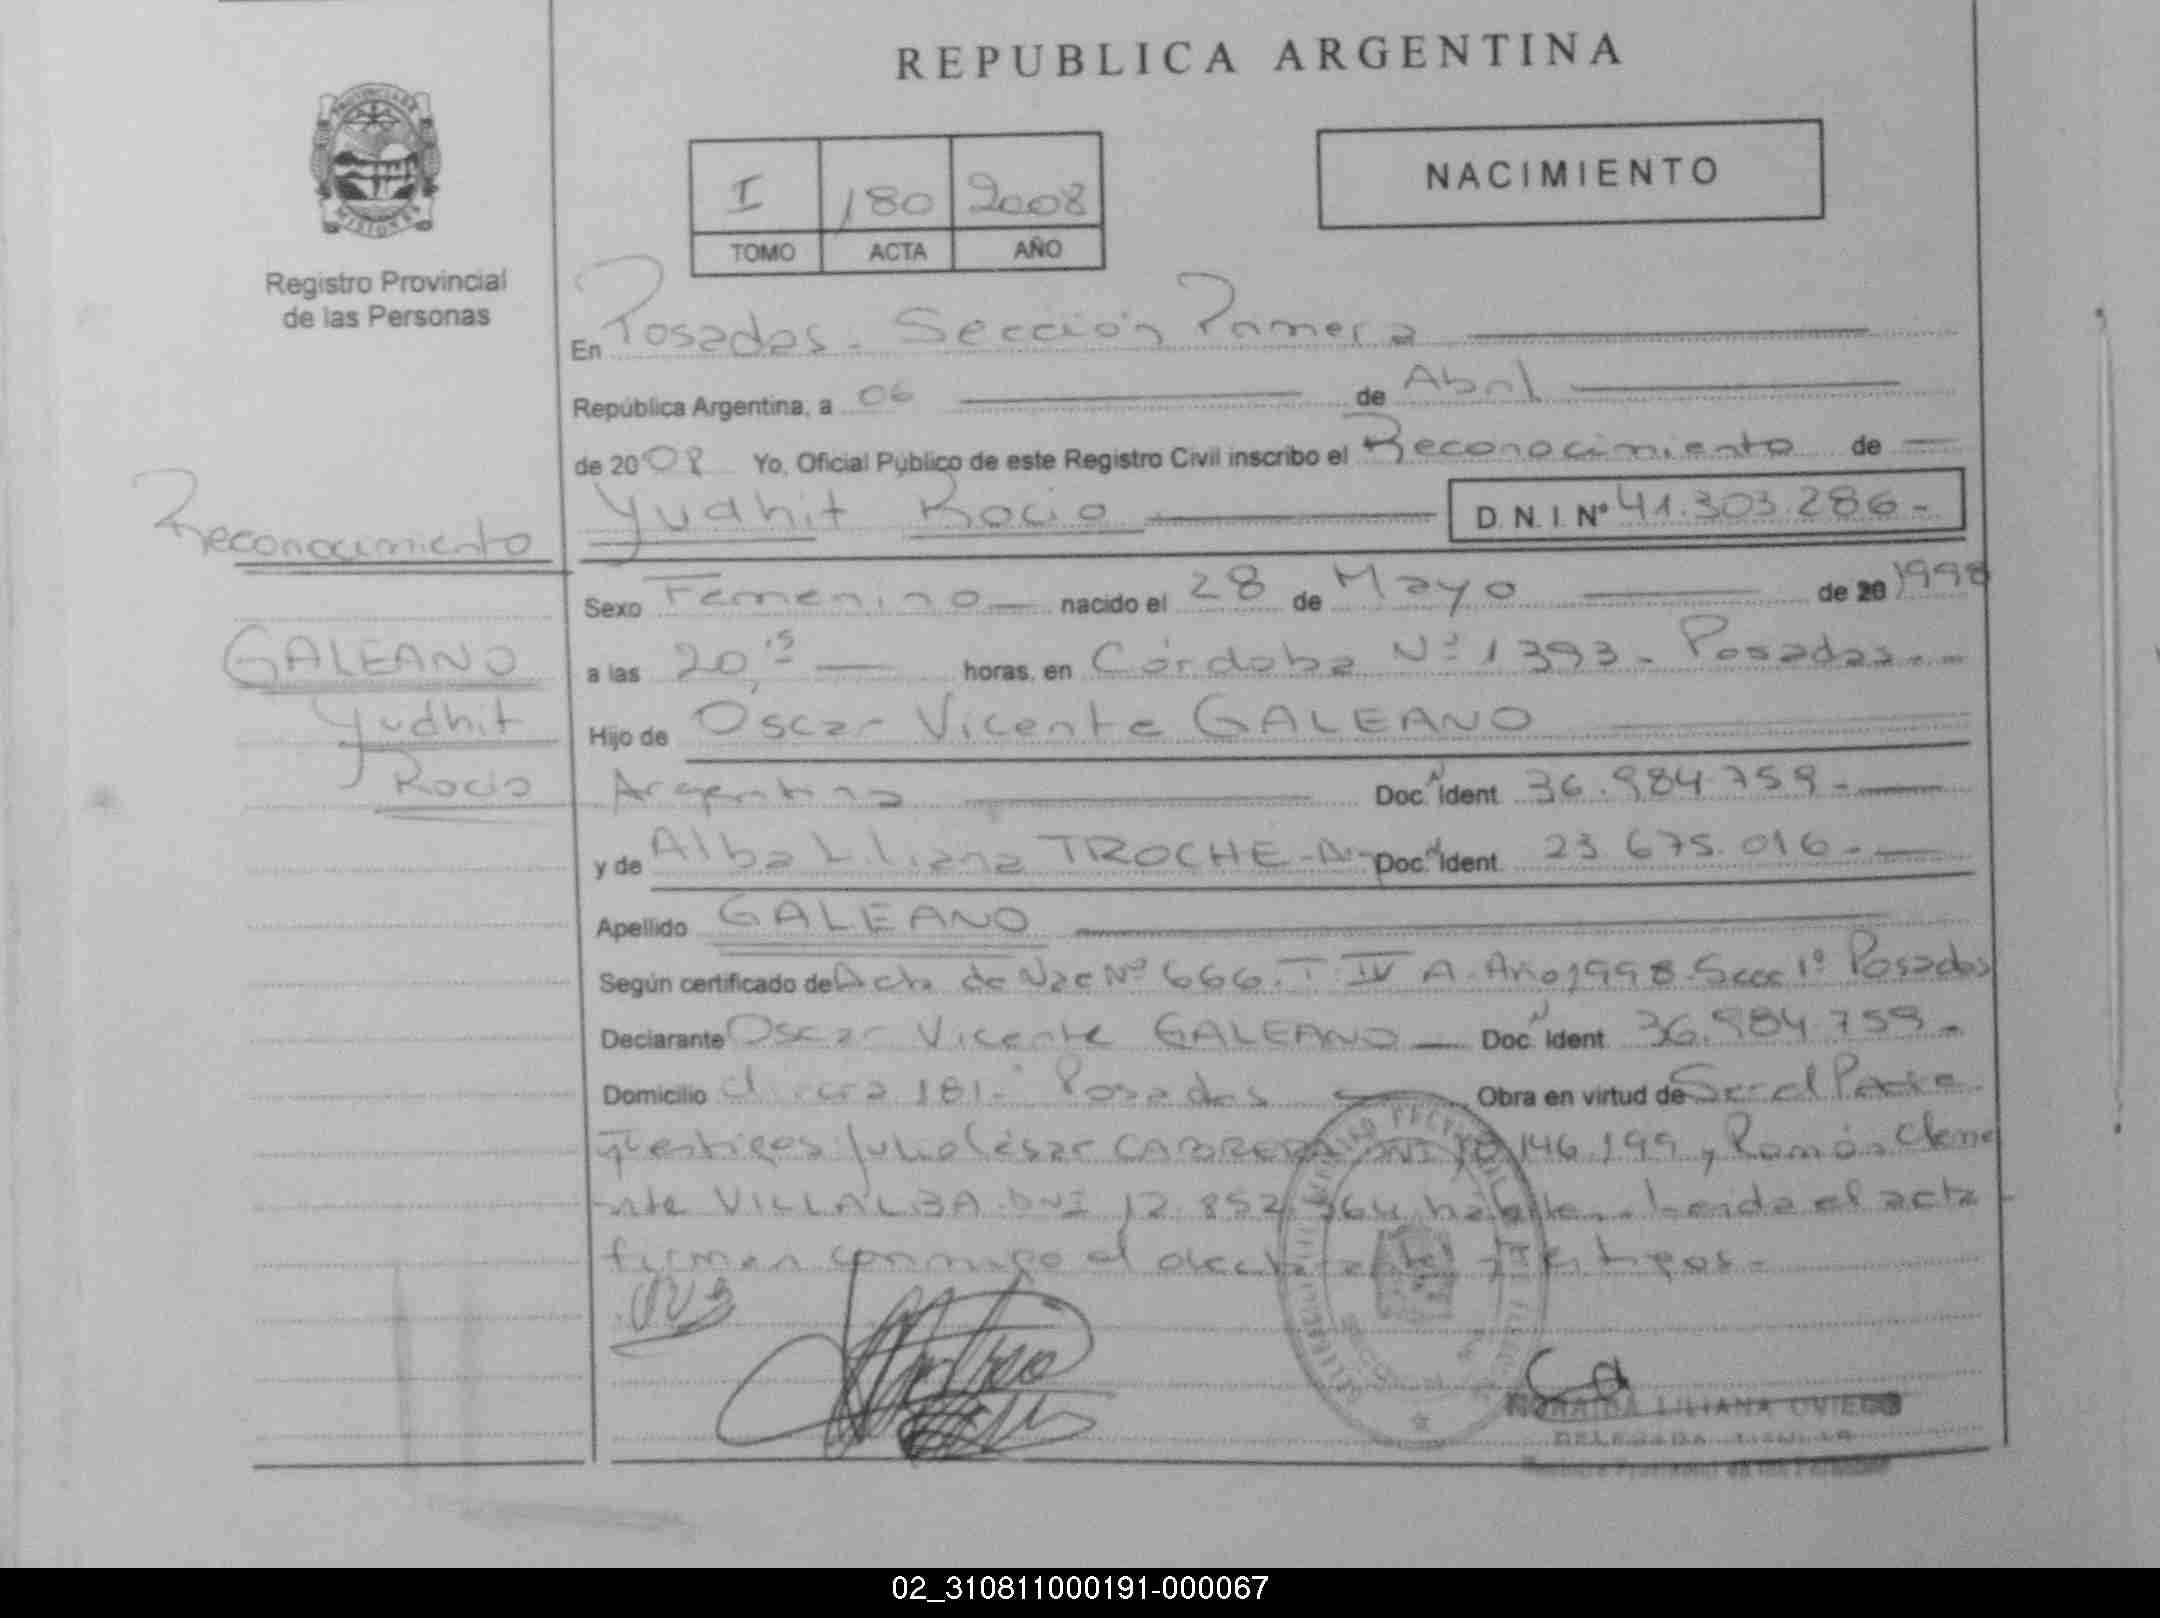 REPUBLICA ARGENTINA
PROVINCIA DE
MISIONES
Registro Provincial
de las Personas
I 180 2008
TOMO ACTA AÑO
NACIMIENTO
En Posadas - Sección Primera
República Argentina, a 06 de Abril
de 2008 Yo, Oficial Público de este Registro Civil inscribo el Reconocimiento de
Yudhit Rocio D.N.I. Nº 41.303.286-
Reconocimiento
GALEANO
Yudhit
Rocio
Sexo Femenino nacido el 28 de Mayo de 20 1998
a las 20,15 horas, en Córdoba Nº 1393- Posadas--
Hijo de Oscar Vicente GALEANO
Argentino Doc. Ident. 36.984.759-
y de Alba Liliana TROCHE- Doc. Ident. 23.675.016-
Apellido GALEANO
Según certificado de Acta de Nac Nº 666. T. IV A. Año 1998. Secc 1º Posadas
Declarante Oscar Vicente GALEANO Doc. Ident. 36.984.759-
Domicilio 181- Posadas Obra en virtud de Ser el Padre
y testigos Julio César CABRERA DNI 146.199 y Ramón Cleme
-nte VILLALBA. DNI 12.852. 964 hábiles. Leída el acta
firman conmigo el declarante y testigos-
LILIANA OVIEDO
DELEGADA TITULAR
Registro Provincial de las Personas
02_310811000191-000067